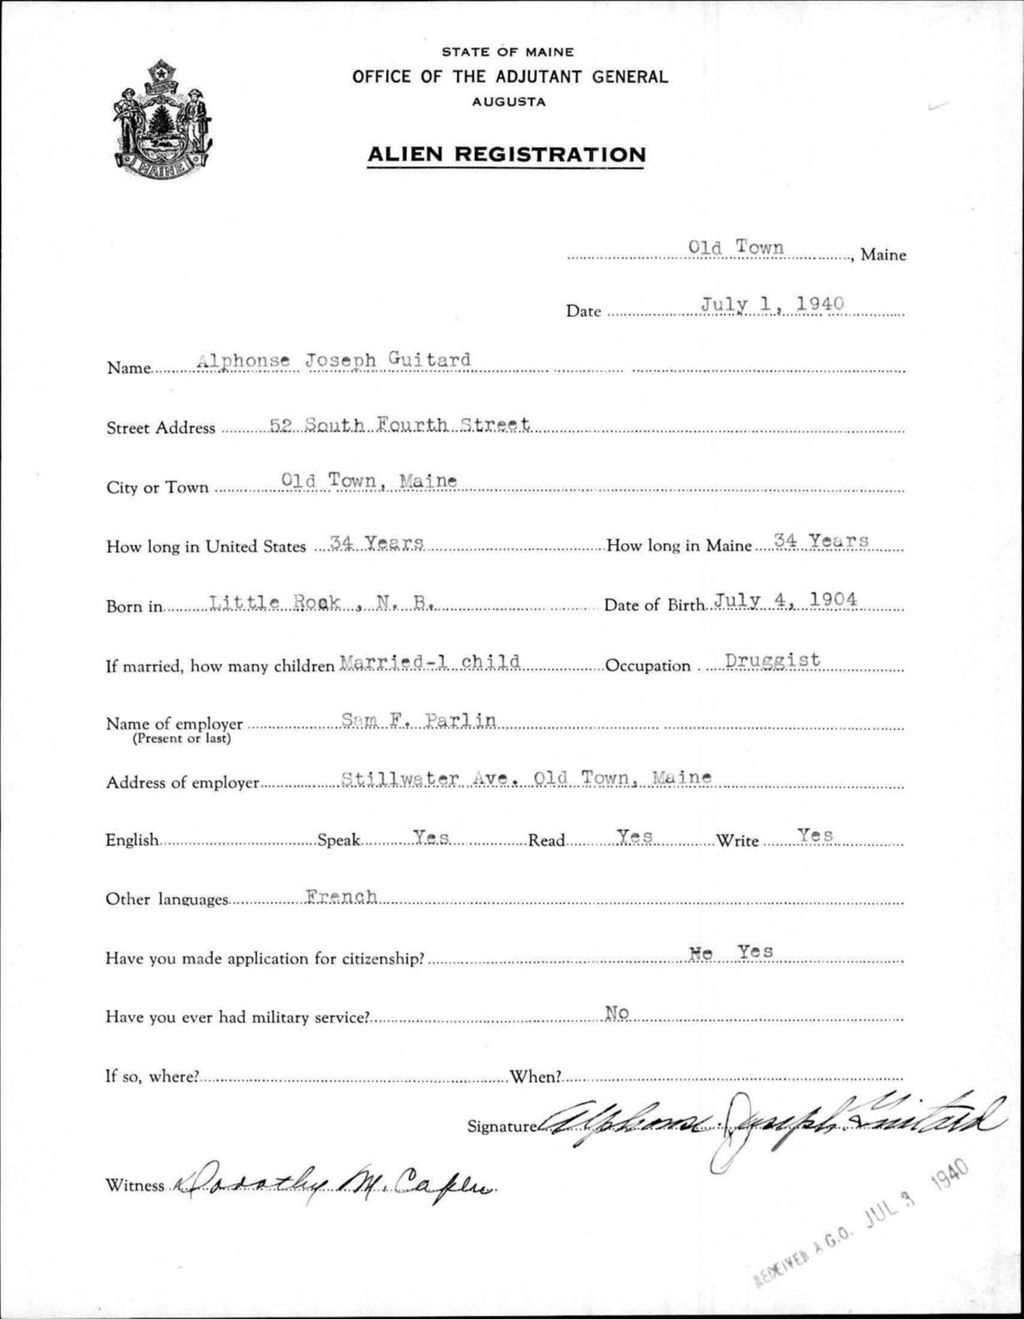 STATE OF MAINE
OFFICE OF THE ADJUTANT GENERAL
AUGUSTA
ALIEN REGISTRATION
MAINE
Old Town, Maine
Date July 1, 1940
Name Alphonse Joseph Guitard
Street Address 52 South Fourth Street
City or Town Old Town, Maine
How long in United States 34 Years How long in Maine 34 Years
Born in Little Rock, N. B. Date of Birth July 4, 1904
If married, how many children Married-1 child Occupation Druggist
Name of employer Sam F. Parlin
(Present or last)
Address of employer Stillwater Ave. Old Town, Maine
English Speak Yes Read Yes Write Yes
Other languages French
Have you made application for citizenship? No Yes
Have you ever had military service? No
If so, where? When?
Signature Alphonse Joseph Guitard
Witness Dorothy M.
RECEIVED A.G.O. JUL 3 1940